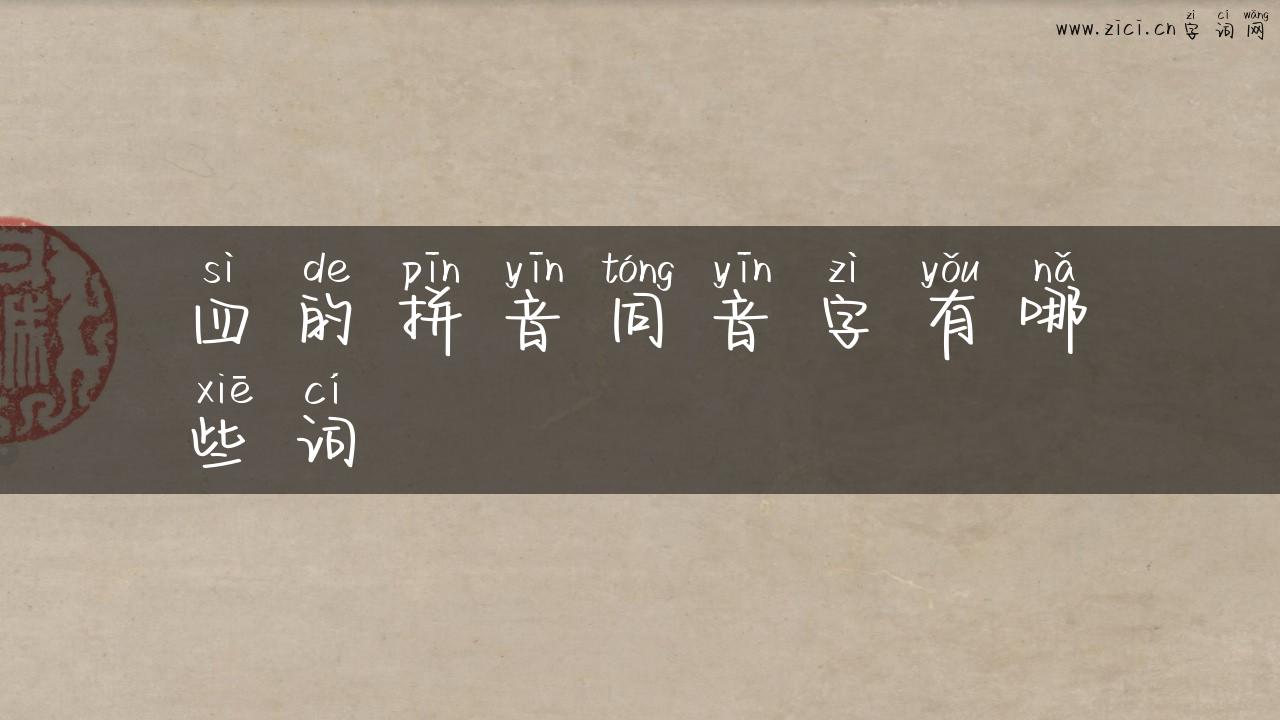 zì cí wǎng
www.zici.cn 字 词 网
sì de pīn yīn tóng yīn zì yǒu nǎ
四 的 拼 音 同 音 字 有 哪
xiē cí
些 词